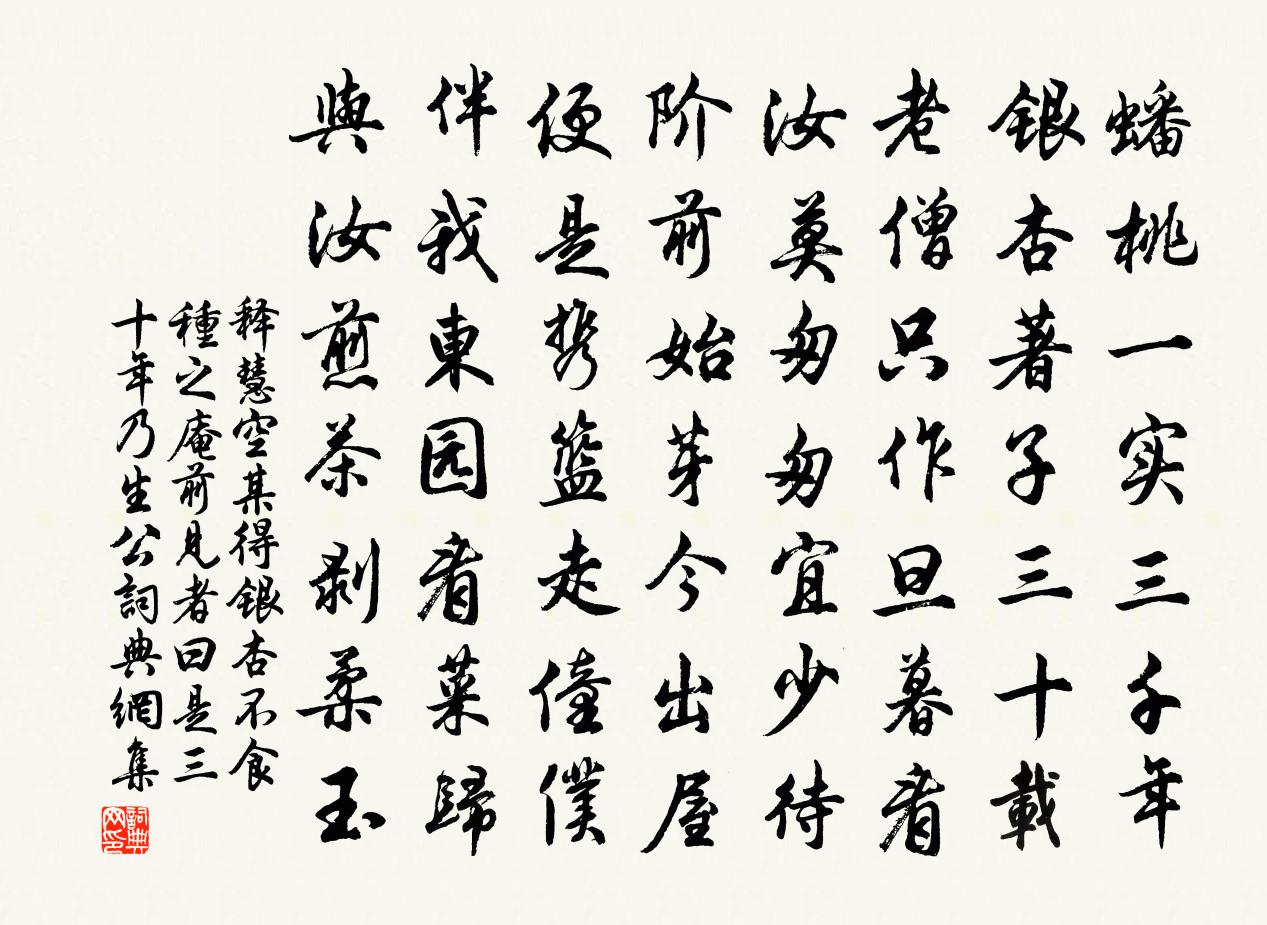 蟠桃一实三千年
银杏著子三十載
老僧只作旦暮看
汝莫匆匆宜少待
阶前始芽今出屋
便是携篮走僮僕
伴我東园看菓歸
與汝煎茶剥柔玉
释慧空某得银杏不食
種之庵前见者曰是三
十年乃生公詞典網集
詞典
网印